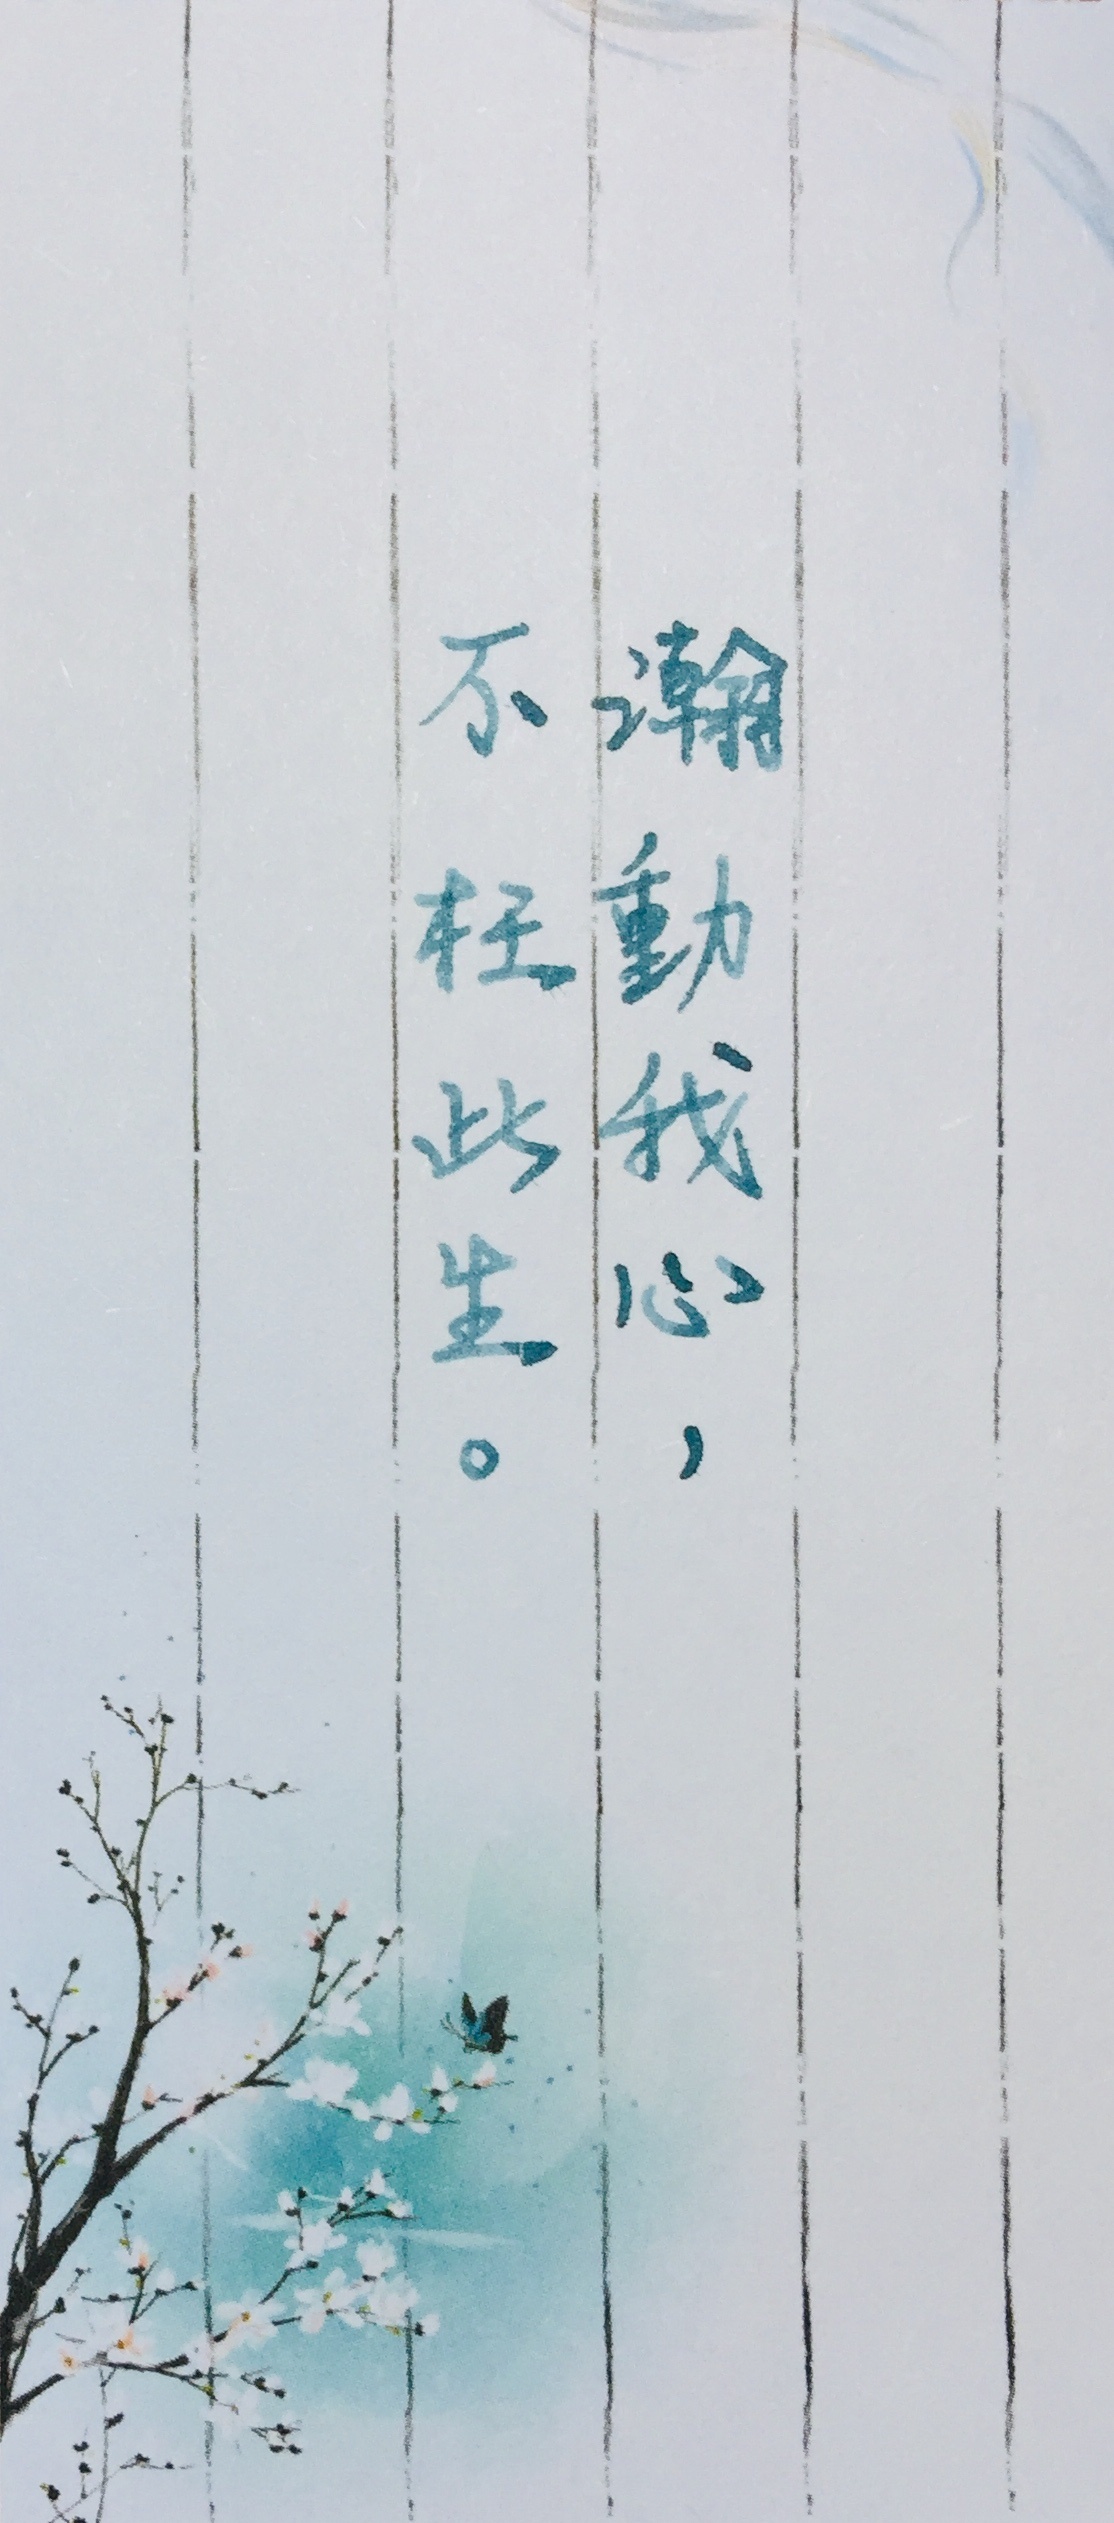 瀚動我心，
不枉此生。